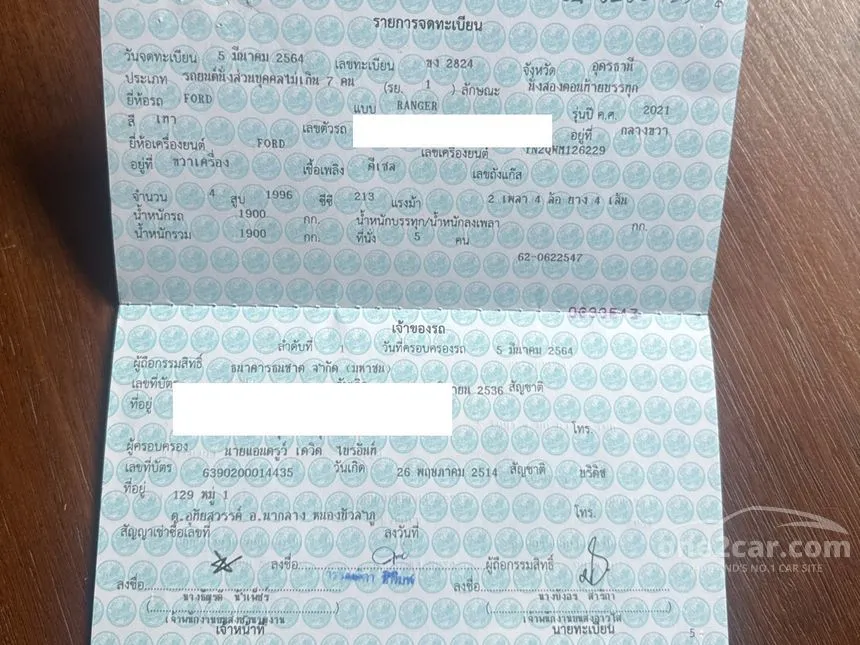 รายการจดทะเบียน
วันจดทะเบียน 5 มีนาคม 2564 เลขทะเบียน ขง 2824 จังหวัด อุดรธานี
ประเภท รถยนต์นั่งส่วนบุคคลไม่เกิน 7 คน (รย. 1 ) ลักษณะ นั่งสองตอนท้ายบรรทุก
ยี่ห้อรถ FORD แบบ RANGER รุ่นปี ค.ศ. 2021
สี เทา เลขตัวรถ อยู่ที่ กลางขวา
ยี่ห้อเครื่องยนต์ FORD เลขเครื่องยนต์
อยู่ที่ ขวาเครื่อง เชื้อเพลิง ดีเซล เลขถังแก๊ส
จำนวน 4 สูบ 1996 ซีซี 213 แรงม้า 2 เพลา 4 ล้อ ยาง 4 เส้น
น้ำหนักรถ 1900 กก. น้ำหนักบรรทุก/น้ำหนักลงเพลา กก.
น้ำหนักรวม 1900 กก. ที่นั่ง 5 คน
62-0622547
เจ้าของรถ
ลำดับที่ 1 วันที่ครอบครองรถ 5 มีนาคม 2564
ผู้ถือกรรมสิทธิ์ ธนาคารธนชาต จำกัด (มหาชน)
เลขที่บัตร 2536 สัญชาติ
ที่อยู่
โทร.
ผู้ครอบครอง นายแอนดรูว์ เดวิด ไบรอันท์
เลขที่บัตร 6390200014435 วันเกิด 26 พฤษภาคม 2514 สัญชาติ บริติช
ที่อยู่ 129 หมู่ 1 โทร.
ต.อุทัยสวรรค์ อ.นากลาง หนองบัวลำภู
สัญญาเช่าซื้อเลขที่ ลงวันที่
ลงชื่อ ผู้ถือกรรมสิทธิ์
ลงชื่อ ลงชื่อ
เจ้าหน้าที่ นายทะเบียน
5
one2car.com
THAILAND'S NO.1 CAR SITE